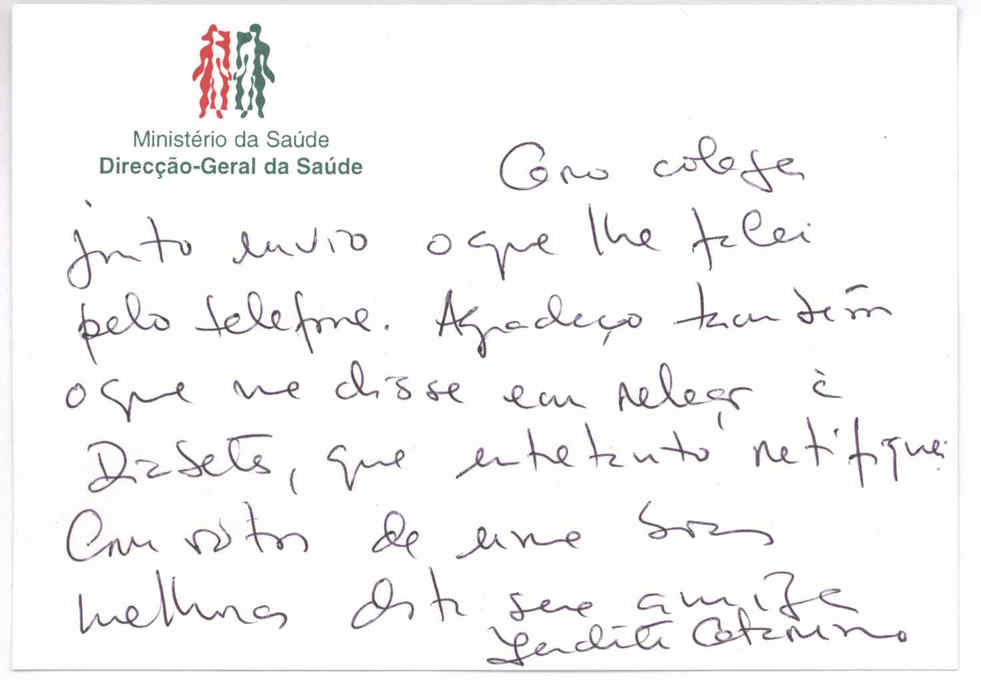 Ministério da Saúde
Direcção-Geral da Saúde
Caro colega
junto envio o que lhe falei
pelo telefone. Agradeço também
o que me disse em relação à
Diabetes, que entretanto retifiquei
Com votos de umas boas
melhoras desta sua amiga
Catarino